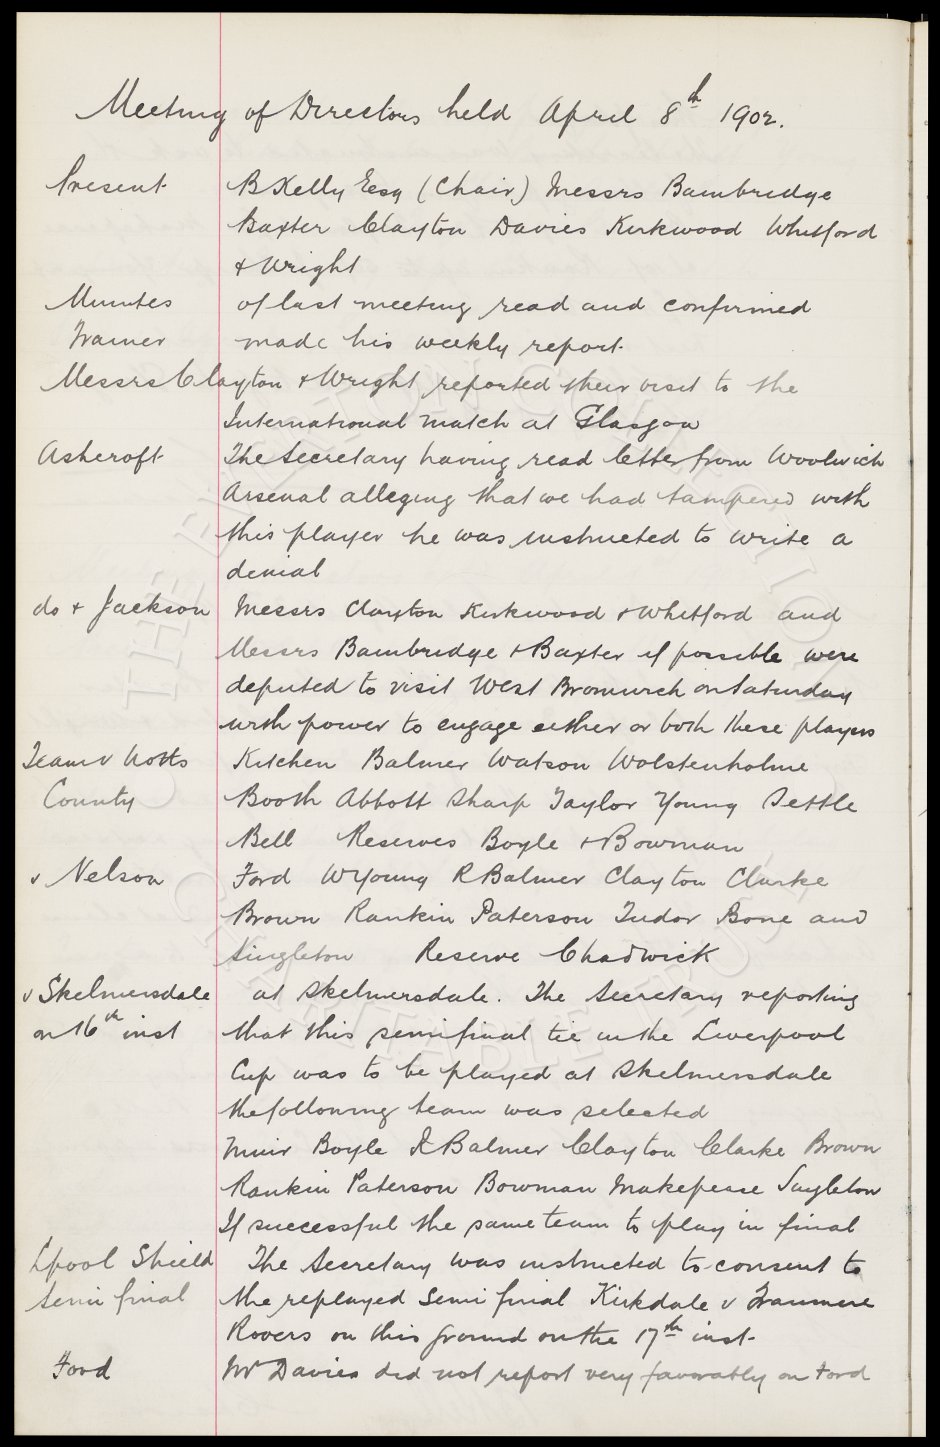 Meeting of Directors held April 8th 1902.
Present B Kelly Esq (Chair) Messrs Bainbridge
Baxter Clayton Davies Kirkwood Whitford
& Wright
Minutes of last meeting read and confirmed
Trainer made his weekly report
Messrs Clayton & Wright reported their visit to the
International match at Glasgow
Ashcroft The Secretary having read letter from Woolwich
Arsenal alleging that we had tampered with
this player he was instructed to write a
denial
do & Jackson Messrs Clayton Kirkwood & Whitford and
Messrs Bainbridge & Baxter if possible were
deputed to visit West Bromwich on Saturday
with power to engage either or both these players
Team v Notts Kitchen Balmer Watson Wolstenholme
County Booth Abbott Sharp Taylor Young Settle
Bell Reserves Boyle & Bowman
v Nelson Ford W Young R Balmer Clayton Clarke
Brown Rankin Paterson Tudor Bone and
Singleton Reserve Chadwick
v Skelmersdale at Skelmersdale. The Secretary reporting
on 16th inst that this semifinal tie in the Liverpool
Cup was to be played at Skelmersdale
the following team was selected
Muir Boyle R Balmer Clayton Clarke Brown
Rankin Paterson Bowman Makepeace Singleton
If successful the same team to play in final
Lpool Shield The Secretary was instructed to consent to
Semi final the replayed Semi final Kirkdale v Tranmere
Rovers on this ground on the 17th inst.
Ford Mr Davies did not report very favorably on Ford
THE EVERTON COLLECTION
CHARITABLE TRUST